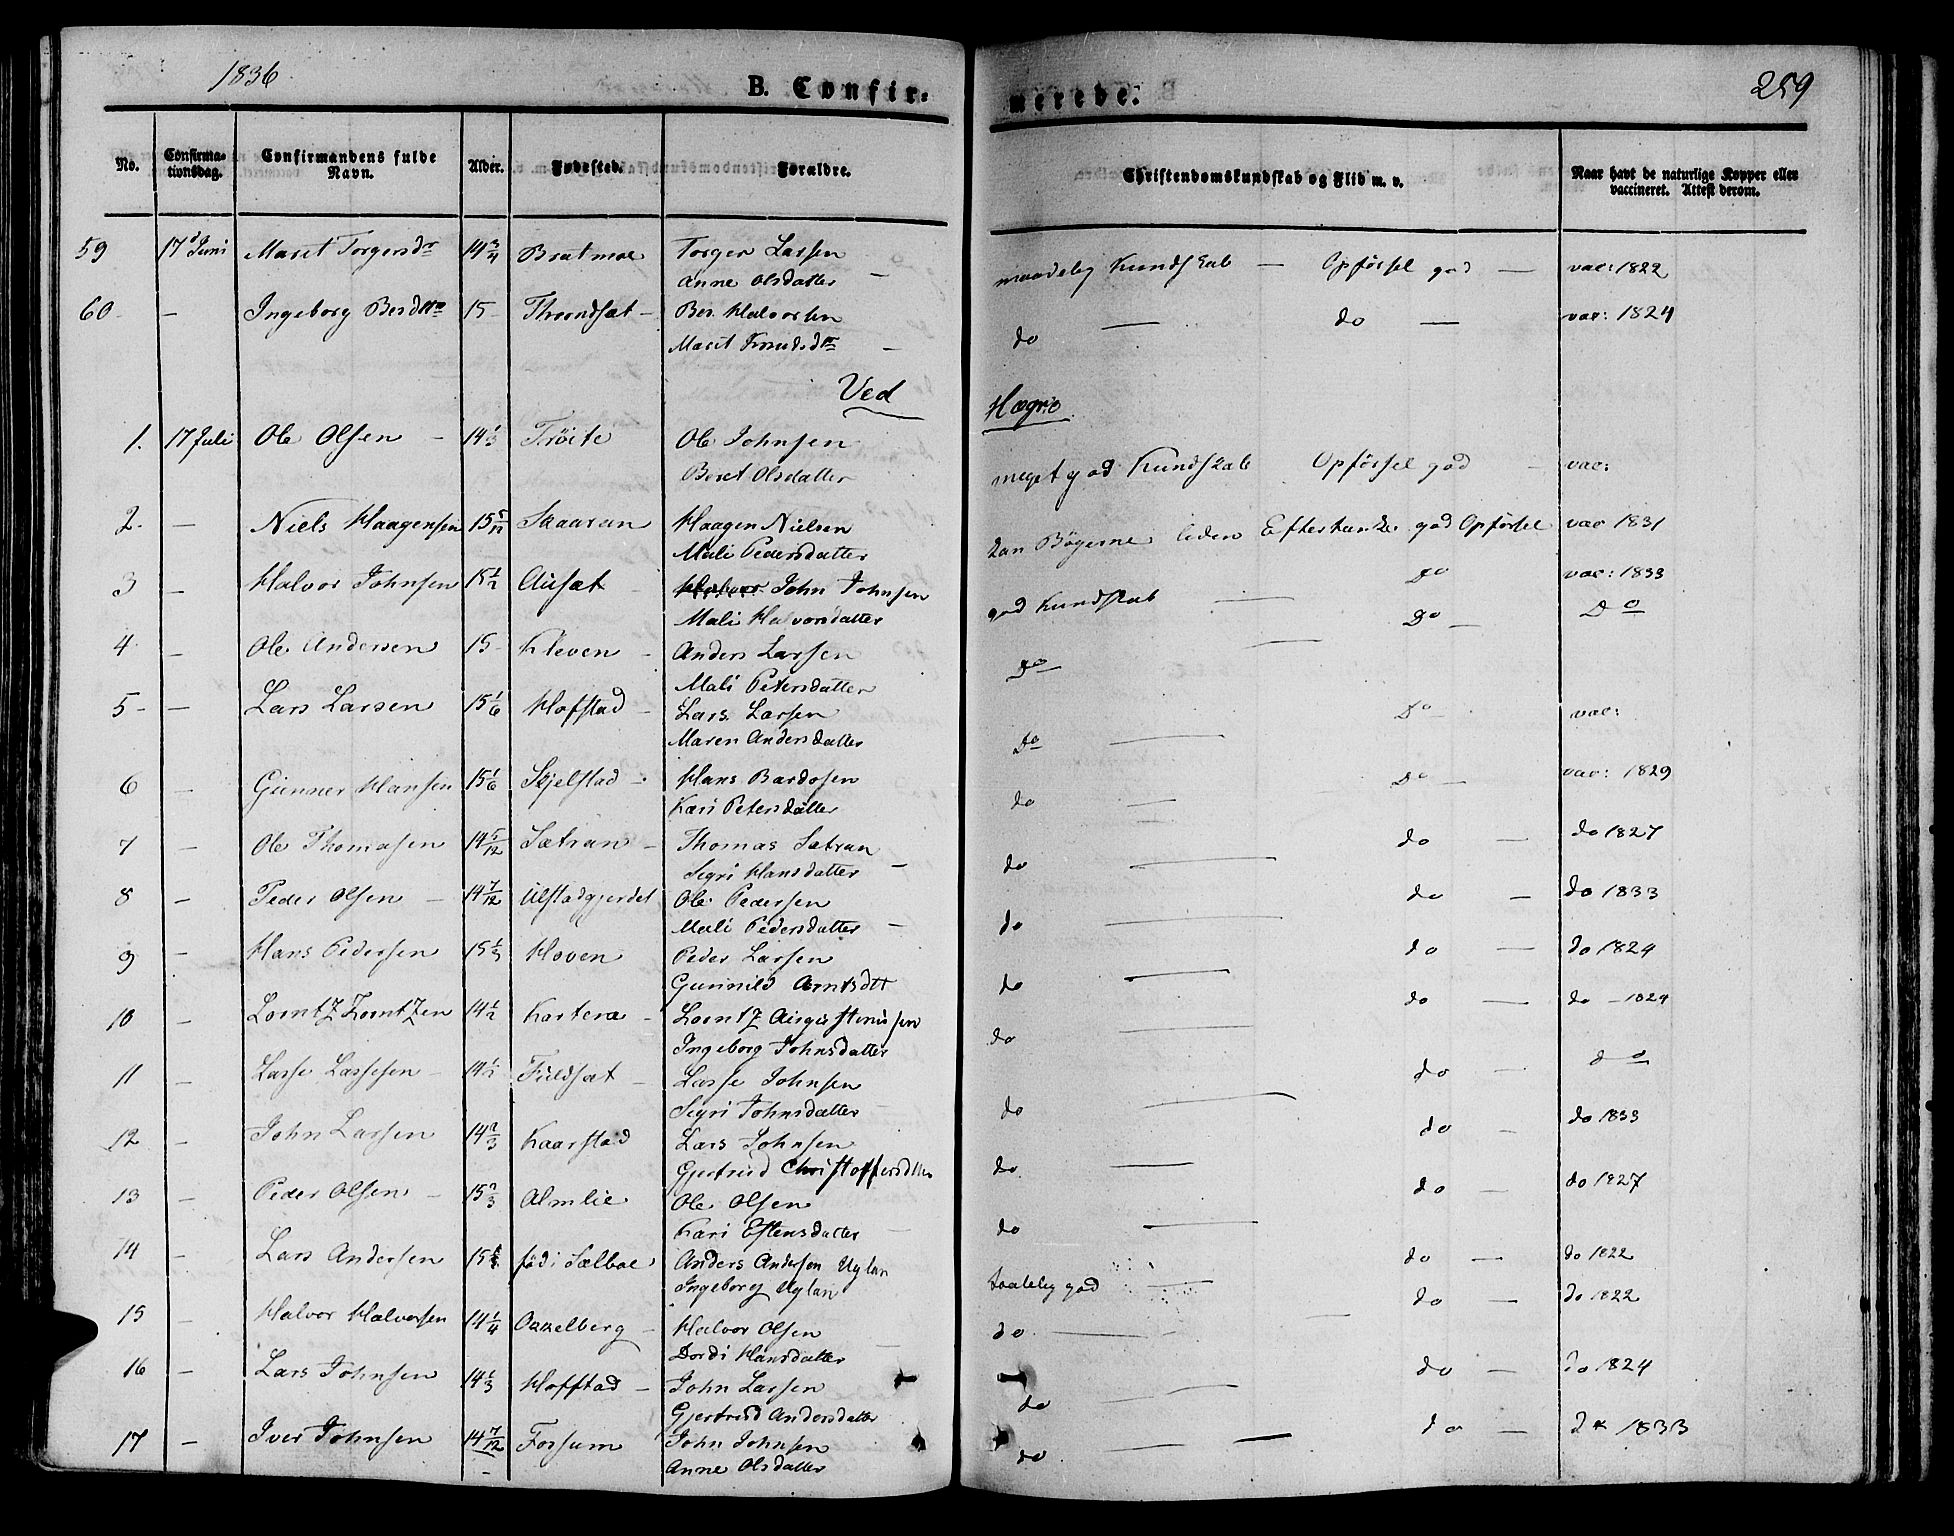 1836
B. Confir-
merede.
259
No.
Confirma-
tionsdag.
Confirmandens fulde
Navn.
Alder.
Fødested.
Forældre.
Christendomskundskab og Flid m. v.
Naar havt de naturlige Kopper eller
vaccineret. Attest derom.
59 17 Juni Marit Torgersdr 14 3/4 Bratmoe Torger Larsen maadelig Kundskab — Opførsel god — vac: 1822
Anne Olsdatter —
60 — Ingeborg Bersdtr 15 Throndsæt — Ber Halvorsen do — do — vac: 1824
Marit Knudsdtr —
Ved Hægre
1. 17 Juli Ole Olsen — 14 1/3 Trøite Ole Johnsen meget god Kundskab Opførsel god — vac:
Beret Olsdatter
2. — Niels Haagensen 15 5/12 Skaaran Haagen Nielsen kan Bøgerne, liden Eftertanke god Opførsel vac 1831
Mali Pedersdatter
3 — Halvor Johnsen 15 1/2 Ausæt — Halvor John Johnsen god Kundskab — Do vac: 1833
Mali Halvorsdatter
4 — Ole Andersen 15 Kleven — Anders Larsen Do — Do — Do
Mali Petersdatter
5 — Lars Larsen 15 1/6 Hofstad — Lars Larsen Do — Do — vac:
Maren Andersdatter
6 — Gunner Hansen 15 1/6 Skjelstad — Hans Bardosen do — Do — vac: 1829
Kari Petersdatter
7 — Ole Thomasen 14 5/12 Sætran — Thomas Sætran do — do — do 1827
Sigri Hansdatter —
8 — Peder Olsen — 14 7/12 Ulstadgjerdet Ole Pedersen do — do — do 1833
Mali Pedersdatter —
9 — Hans Pedersen 15 1/3 Hoven Peder Larsen do — do — do 1824
Gunnild Arntsdtt
10 — Lorntz Lorntzen 14 1/2 Kartera — Lorntz do — do — do — 1824
Ingeborg Johnsdatter
11 — Lasse Lassesen — 14 1/2 Fuldsæt — Lasse Johnsen do — do — do
Sigri Johnsdatter —
12 — John Larsen 14 2/3 Kaarstad Lars Johnsen do — do — do 1833
Gjertrud Christoffersdtter
13 — Peder Olsen — 15 2/3 Almlie Ole Olsen do — do — do 1827
Kari Estensdatter —
14 — Lars Andersen 15 fød i Sælboe Anders Andersen Uglan taalelig god — do — do 1822
Ingeborg Uglan
15 — Halvor Halvorsen 14 1/4 Okkelberg — Halvor Olsen do — do — do 1822
Dordi Hansdatter —
16 — Lars Johnsen 14 1/3 Hofstad — John Larsen do — do — do 1824
Gjertrud Andersdatter
17 — Iver Johnsen 14 7/12 Forsum John Johnsen do — do — do 1833
Anne Olsdatter